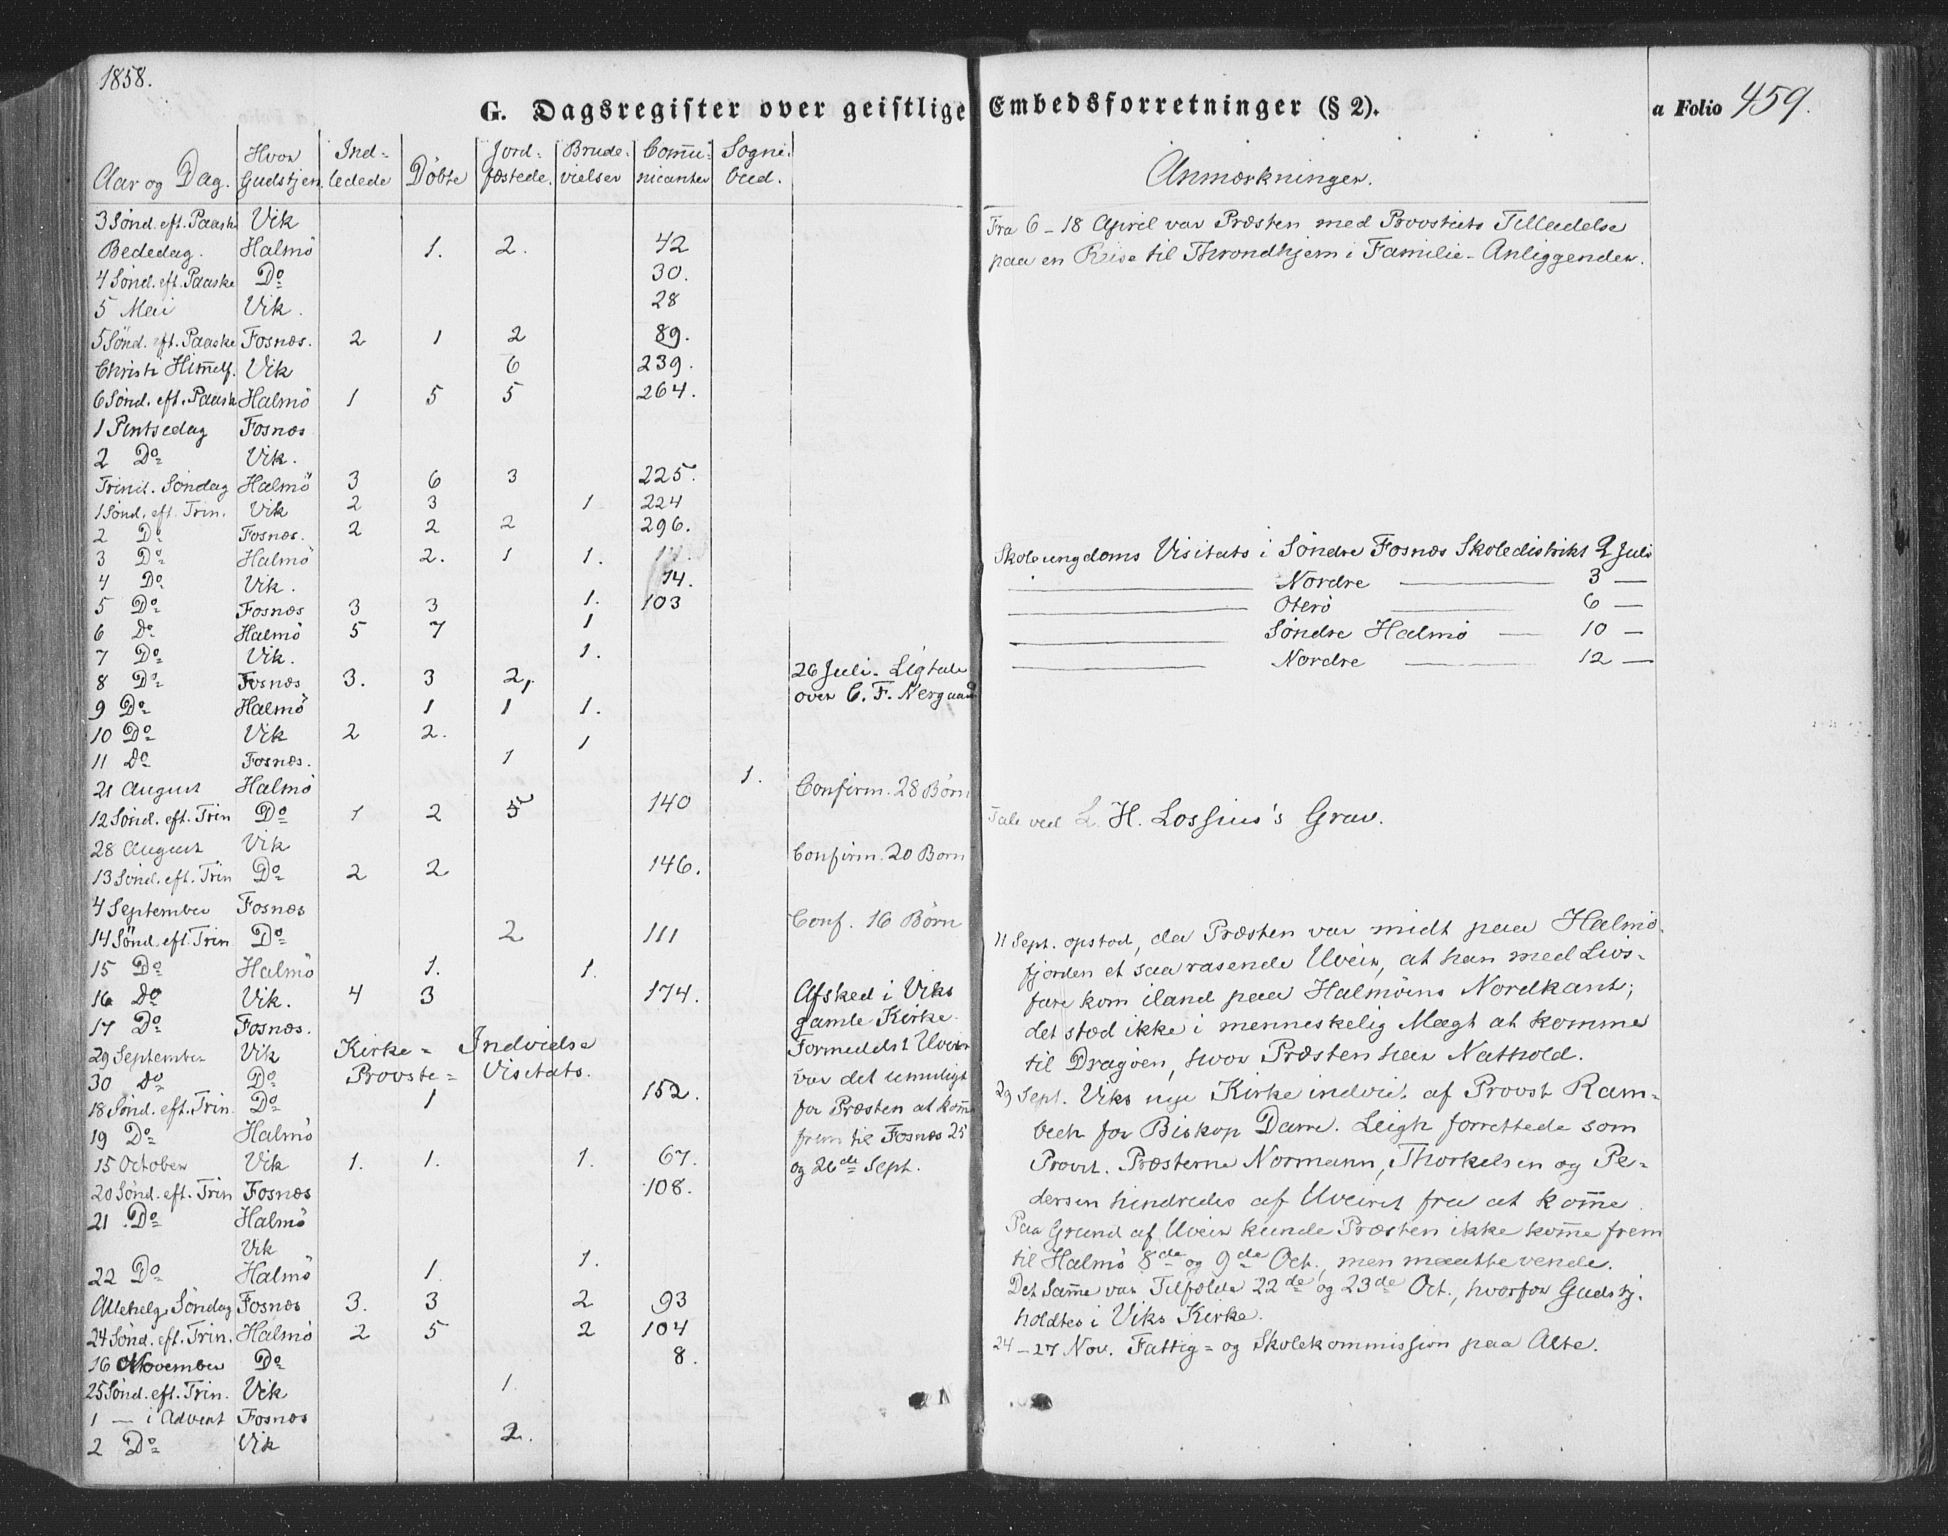 1858.
G. Dagsregister over geistlige Embedsforretninger (§ 2).
a Folio 459.
Aar og Dag. Hvor Gudstjen. Ind-ledede Døbte Jord-fæstede. Brude-vielser Com̄u-nicanter Sogne-bud.
Anmærkninger.
3 Sønd. eft. Paaske Vik
Bededag. Halmö 1. 2. 42
4 Sønd. eft. Paaske Do 30.
5 Mai Vik. 28
5 Sönd. eft. Paaske Fosnæs. 2 1 2 89.
Christi Him̄elf. Vik 6 239.
6 Sønd. eft. Paask Halmö 1 5 5 264.
1 Pintsedag Fosnæs
2 Do Vik.
Trinit. Søndag Halmö 3 6 3 225.
1 Sønd. eft. Trin. Vik 2 3 1 224
2 Do Fosnæs. 2 2 2 296.
3 Do Halmö 2. 1 1.
4 Do Vik. 14.
5 Do Fosnæs 3 3 1. 103
6 Do Halmö 5 7 1
7 Do Vik. 1.
8 Do Fosnæs 3. 3 2, 26 Juli. Ligtale
9 Do Halmö 1 1 1. over C. F. Nergaard
10 Do Vik 2 2. 1
11 Do Fosnæs. 1
21 August Halmö 1. Confirm. 28 Børn
12 Sønd. eft. Trin Do 1 2 5 140
28 August Vik
13 Sönd. eft. Trin Do 2 2 146. Confirm. 20 Born
4 September Fosnæs
14 Sönd. eft. Trin Do 2 111 Conf. 16 Börn
15 Do Halmö 1. 1.
16 Do Vik. 4 3 174. Afsked i Viks
17 Do Fosnæs. gamle Kirke.
29 September Vik Kirke- Indvielse Formedelst Uveir
30 do Do Provste- Visitats. var det umuligt
18 Sønd. eft. Trin. Do 1 152. for Præsten at kom̄e
19 Do Halmö frem til Fosnæs 25
15 October Vik 1. 1. 1. 67. og 26de Sept.
20 Sönd. eft. Trin Fosnæs 108.
21 Do Halmö
Vik
22 Do Halmö 1. 1.
Allehelg. Søndag Fosnæs 3. 3 2 93
24 Sønd. eft. Trin. Halmö 2 5 2 104
16 November Do 8.
25 Sønd. eft. Trin. Vik 1.
1 — i Advent Fosnæs
2 Do Vik 2.
Fra 6 - 18 April var Præsten med Provstiets Tilladelse
paa en Reise til Throndhjem i Familie-Anliggender.
Skoleungdoms Visitats i Søndre Fosnæs Skoledistrikt 2 Juli
Nordre 3 —
Oterö 6 —
Søndre Halmö 10 —
Nordre 12 —
Tale ved L. H. Lossius's Grav.
11 Sept. opstod, da Præsten var midt paa Halmö-
fjorden et saa rasende Uveir, at han med Livs-
fare kom iland paa Halmöens Nordkant;
det stod ikke i menneskelig Magt at komme
til Dragöen, hvor Præsten har Nathold.
29 Sept. Viks nye Kirke indviet af Provst Ram-
bech for Biskop Darre. Leigh forrettede som
Provst. Præsterne Normann, Thorkelsen og Pe-
dersen hindredes af Uveiret fra at kom̄e.
Paa Grund af Uveir kunde Præsten ikke kom̄e frem
til Halmö 8de og 9de Oct., men maatte vende.
Det Sam̄e var Tilfælde 22de og 23de Oct., hvorfor Gudstj.
holdtes i Viks Kirke.
24-27 Nov. Fattig- og Skolekommission paa Alte.